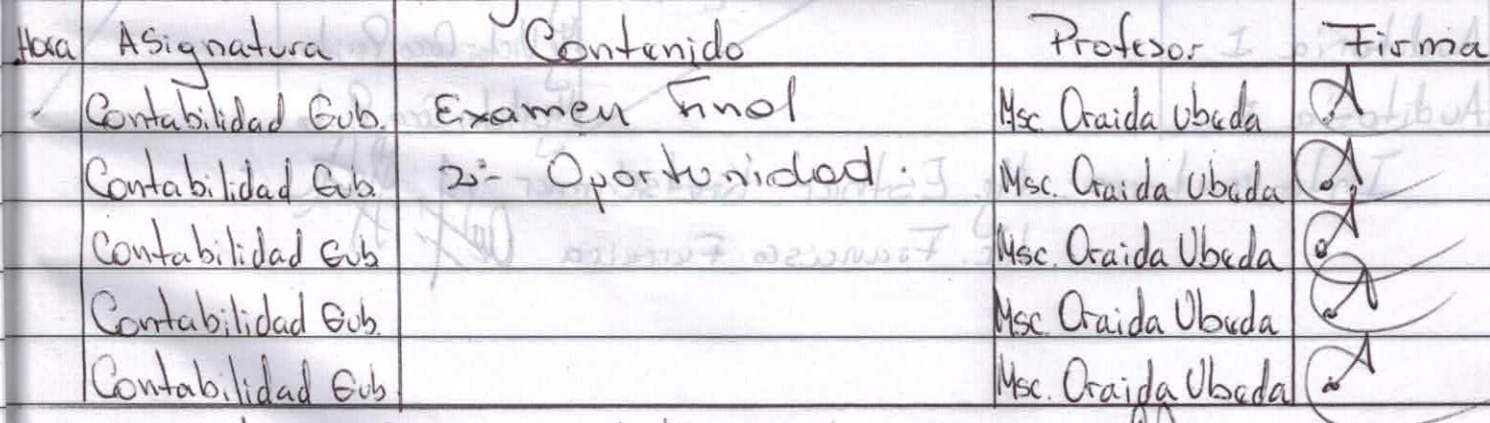 Hora Asignatura Contenido Profesor Firma
Contabilidad Gub. Examen Final Msc. Oraida Ubeda
Contabilidad Gub. 2º- Oportunidad. Msc. Oraida Ubeda
Contabilidad Gub Msc. Oraida Ubeda
Contabilidad Gub. Msc. Oraida Ubeda
Contabilidad Gub Msc. Oraida Ubeda